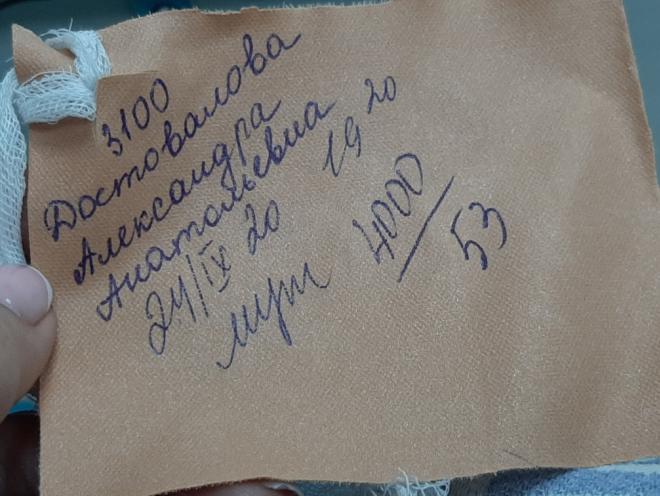 3100
Достовалова
Александра
Анатольевна
24/IX 20 19 20
муж 4000/53